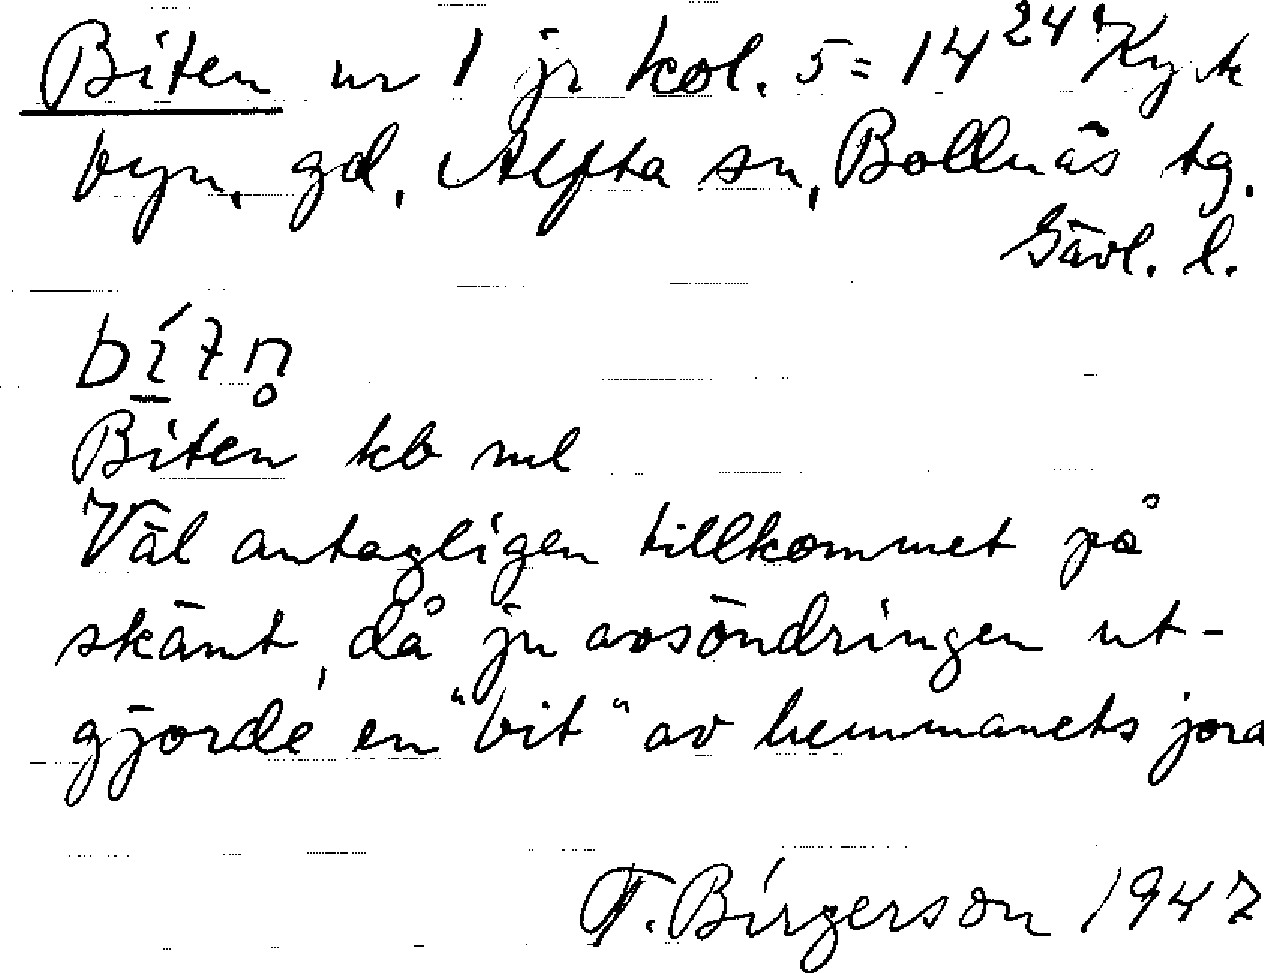 Biten nr 1 jr kol. 5 = 14²⁴ Kyrk
byn, gd, Alfta sn, Bollnäs tg.
Gävl. l.
Biten kb ml
Väl antagligen tillkommet på
skämt, då ju avsöndringen ut-
gjorde en "bit" av hemmanets jord
T. Birgerson 1947